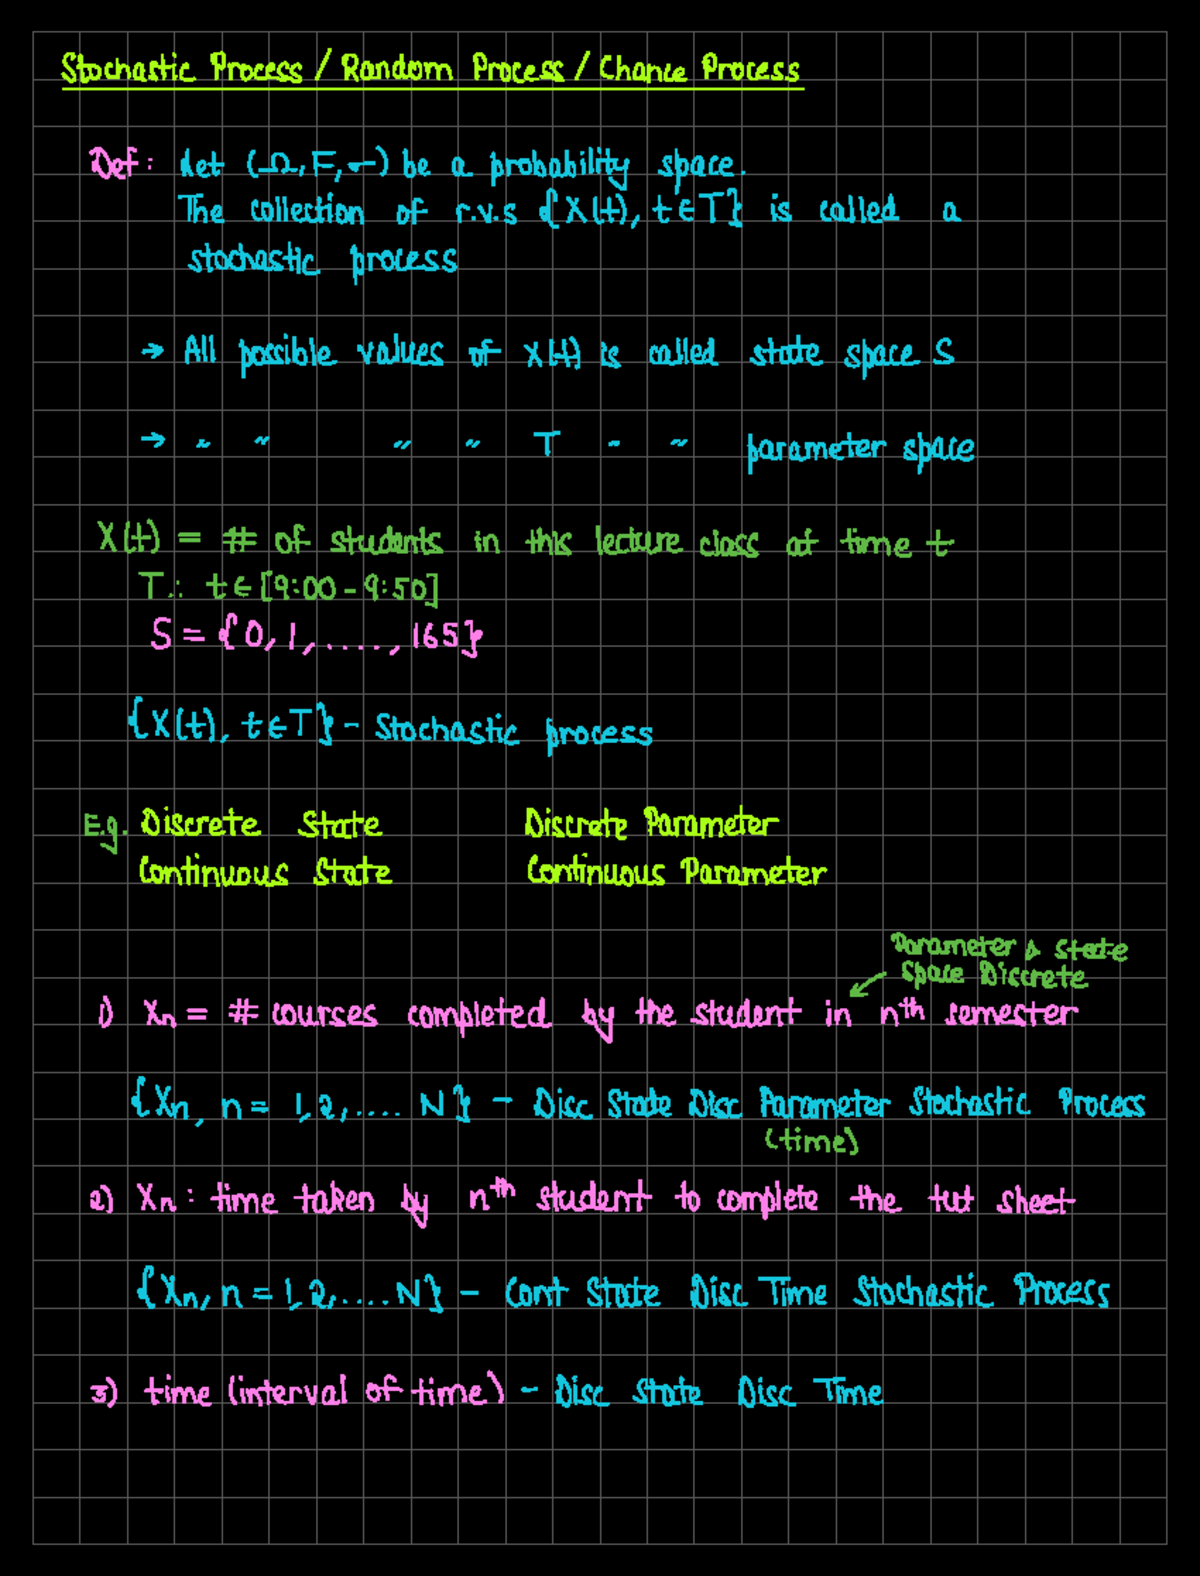 Stochastic Process / Random Process / Chance Process
Def: Let (Ω, F, ) be a probability space.
The collection of r.v.s {X(t), t∈T} is called a
stochastic process
→ All possible values of X(t) is called state space S
→ " " " " T " " parameter space
X(t) = # of students in this lecture class at time t
T: t∈[9:00 - 9:50]
S = {0, 1, ...., 165}
{X(t), t∈T} - Stochastic process
E.g. Discrete State Discrete Parameter
Continuous State Continuous Parameter
Parameter & State
Space Discrete
1) Xn = # courses completed by the student in nth semester
{Xn, n = 1, 2, .... N} - Disc State Disc Parameter Stochastic Process
(time)
2) Xn : time taken by nth student to complete the tut sheet
{Xn, n = 1, 2, .... N} - Cont State Disc Time Stochastic Process
3) time (interval of time) - Disc State Disc Time